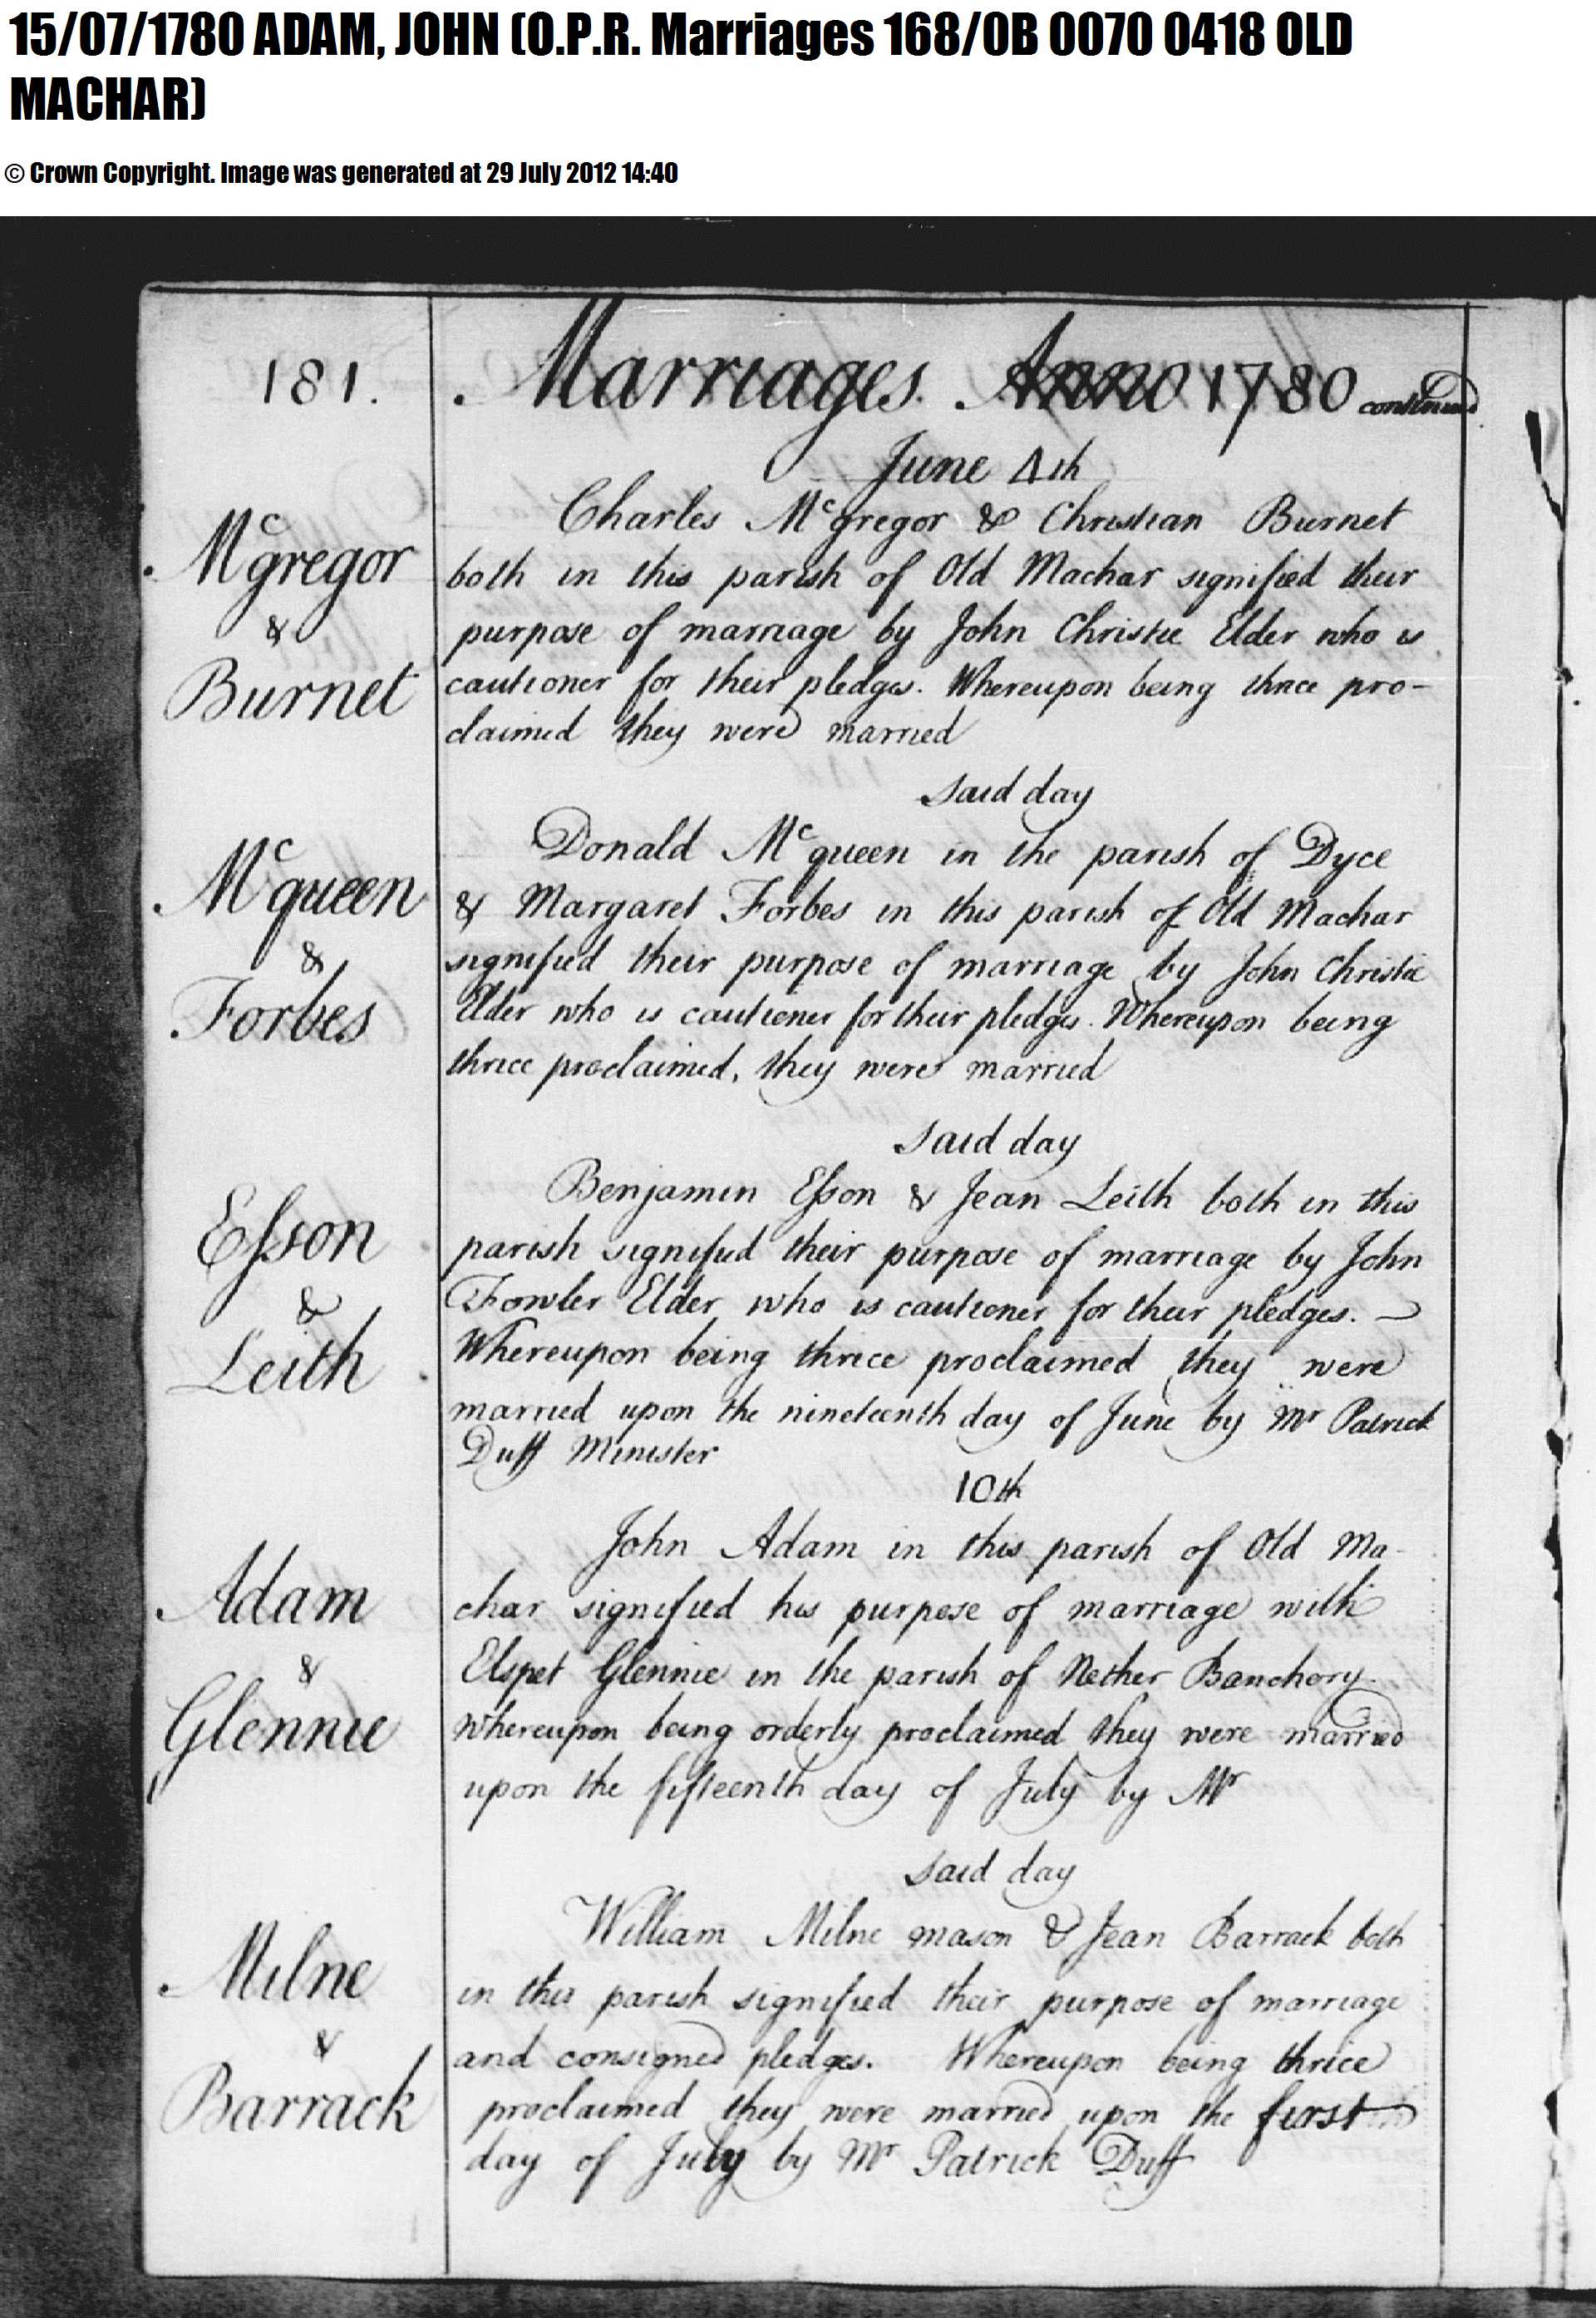 15/07/1780 ADAM, JOHN (O.P.R. Marriages 168/0B 0070 0418 OLD
MACHAR)
© Crown Copyright. Image was generated at 29 July 2012 14:40
181. Marriages. Anno 1780 continued
June 4th
Mcgregor
&
Burnet
Charles Mcgregor & Christian Burnet
both in this parish of Old Machar signified their
purpose of marriage by John Christie Elder who is
cautioner for their pledges. Whereupon being thrice pro-
claimed they were married
said day
Mcqueen
&
Forbes
Donald Mcqueen in the parish of Dyce
& Margaret Forbes in this parish of Old Machar
signified their purpose of marriage by John Christie
Elder who is cautioner for their pledges. Whereupon being
thrice proclaimed, they were married
said day
Eſson
&
Leith
Benjamin Eſson & Jean Leith both in this
parish signified their purpose of marriage by John
Fowler Elder who is cautioner for their pledges. —
Whereupon being thrice proclaimed they were
married upon the nineteenth day of June by Mr Patrick
Duff Minister
10th
Adam
&
Glennie
John Adam in this parish of Old Ma-
char signified his purpose of marriage with
Elspet Glennie in the parish of Nether Banchory.
whereupon being orderly proclaimed they were married
upon the fifteenth day of July by Mr
said day
Milne
&
Barrack
William Milne mason & Jean Barrack both
in this parish signified their purpose of marriage
and consigned pledges. Whereupon being thrice
proclaimed they were married upon the first
day of July by Mr Patrick Duff